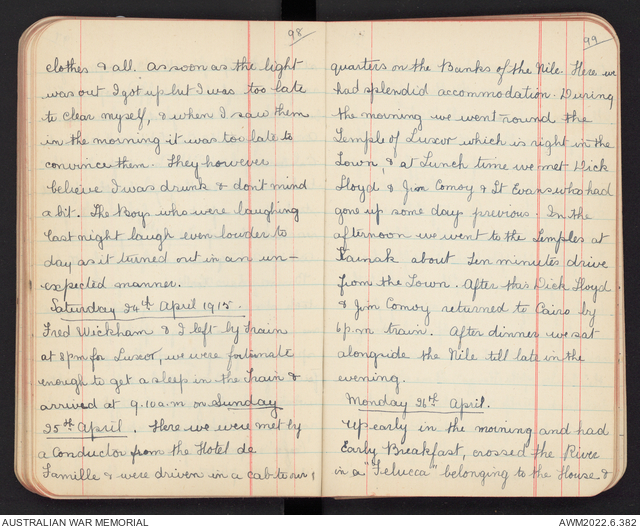 98
clothes & all. As soon as the light
was out I got up but I was too late
to clear myself, & when I saw them
in the morning it was too late to
convince them. They however
believe I was drunk & don't mind
a bit. The Boys who were laughing
last night laugh even louder to
day as it turned out in an un-
expected manner.
Saturday 24th April 1915.
Fred Wickham & I left by Train
at 8 pm for Luxor, we were fortunate
enough to get a sleep in the Train &
arrived at 9.10 a.m on Sunday
25th April. Here we were met by
a Conductor from the Hotel de
Famille & were driven in a cab to our
99
quarters on the Banks of the Nile. Here we
had splendid accommodation. During
the morning we went round the
Temple of Luxor which is right in the
Town, & at Lunch time we met Dick
Lloyd & Jim Comoy & Lt Evans who had
gone up some days previous. In the
afternoon we went to the Temples at
Karnak about ten minutes drive
from the Town. After this Dick Lloyd
& Jim Comoy returned to Cairo by
6 p.m train. After dinner we sat
alongside the Nile till late in the
evening.
Monday 26th April.
Up early in the morning and had
Early Breakfast, crossed the River
in a "Felucca" belonging to the House &
AUSTRALIAN WAR MEMORIAL
AWM2022.6.382